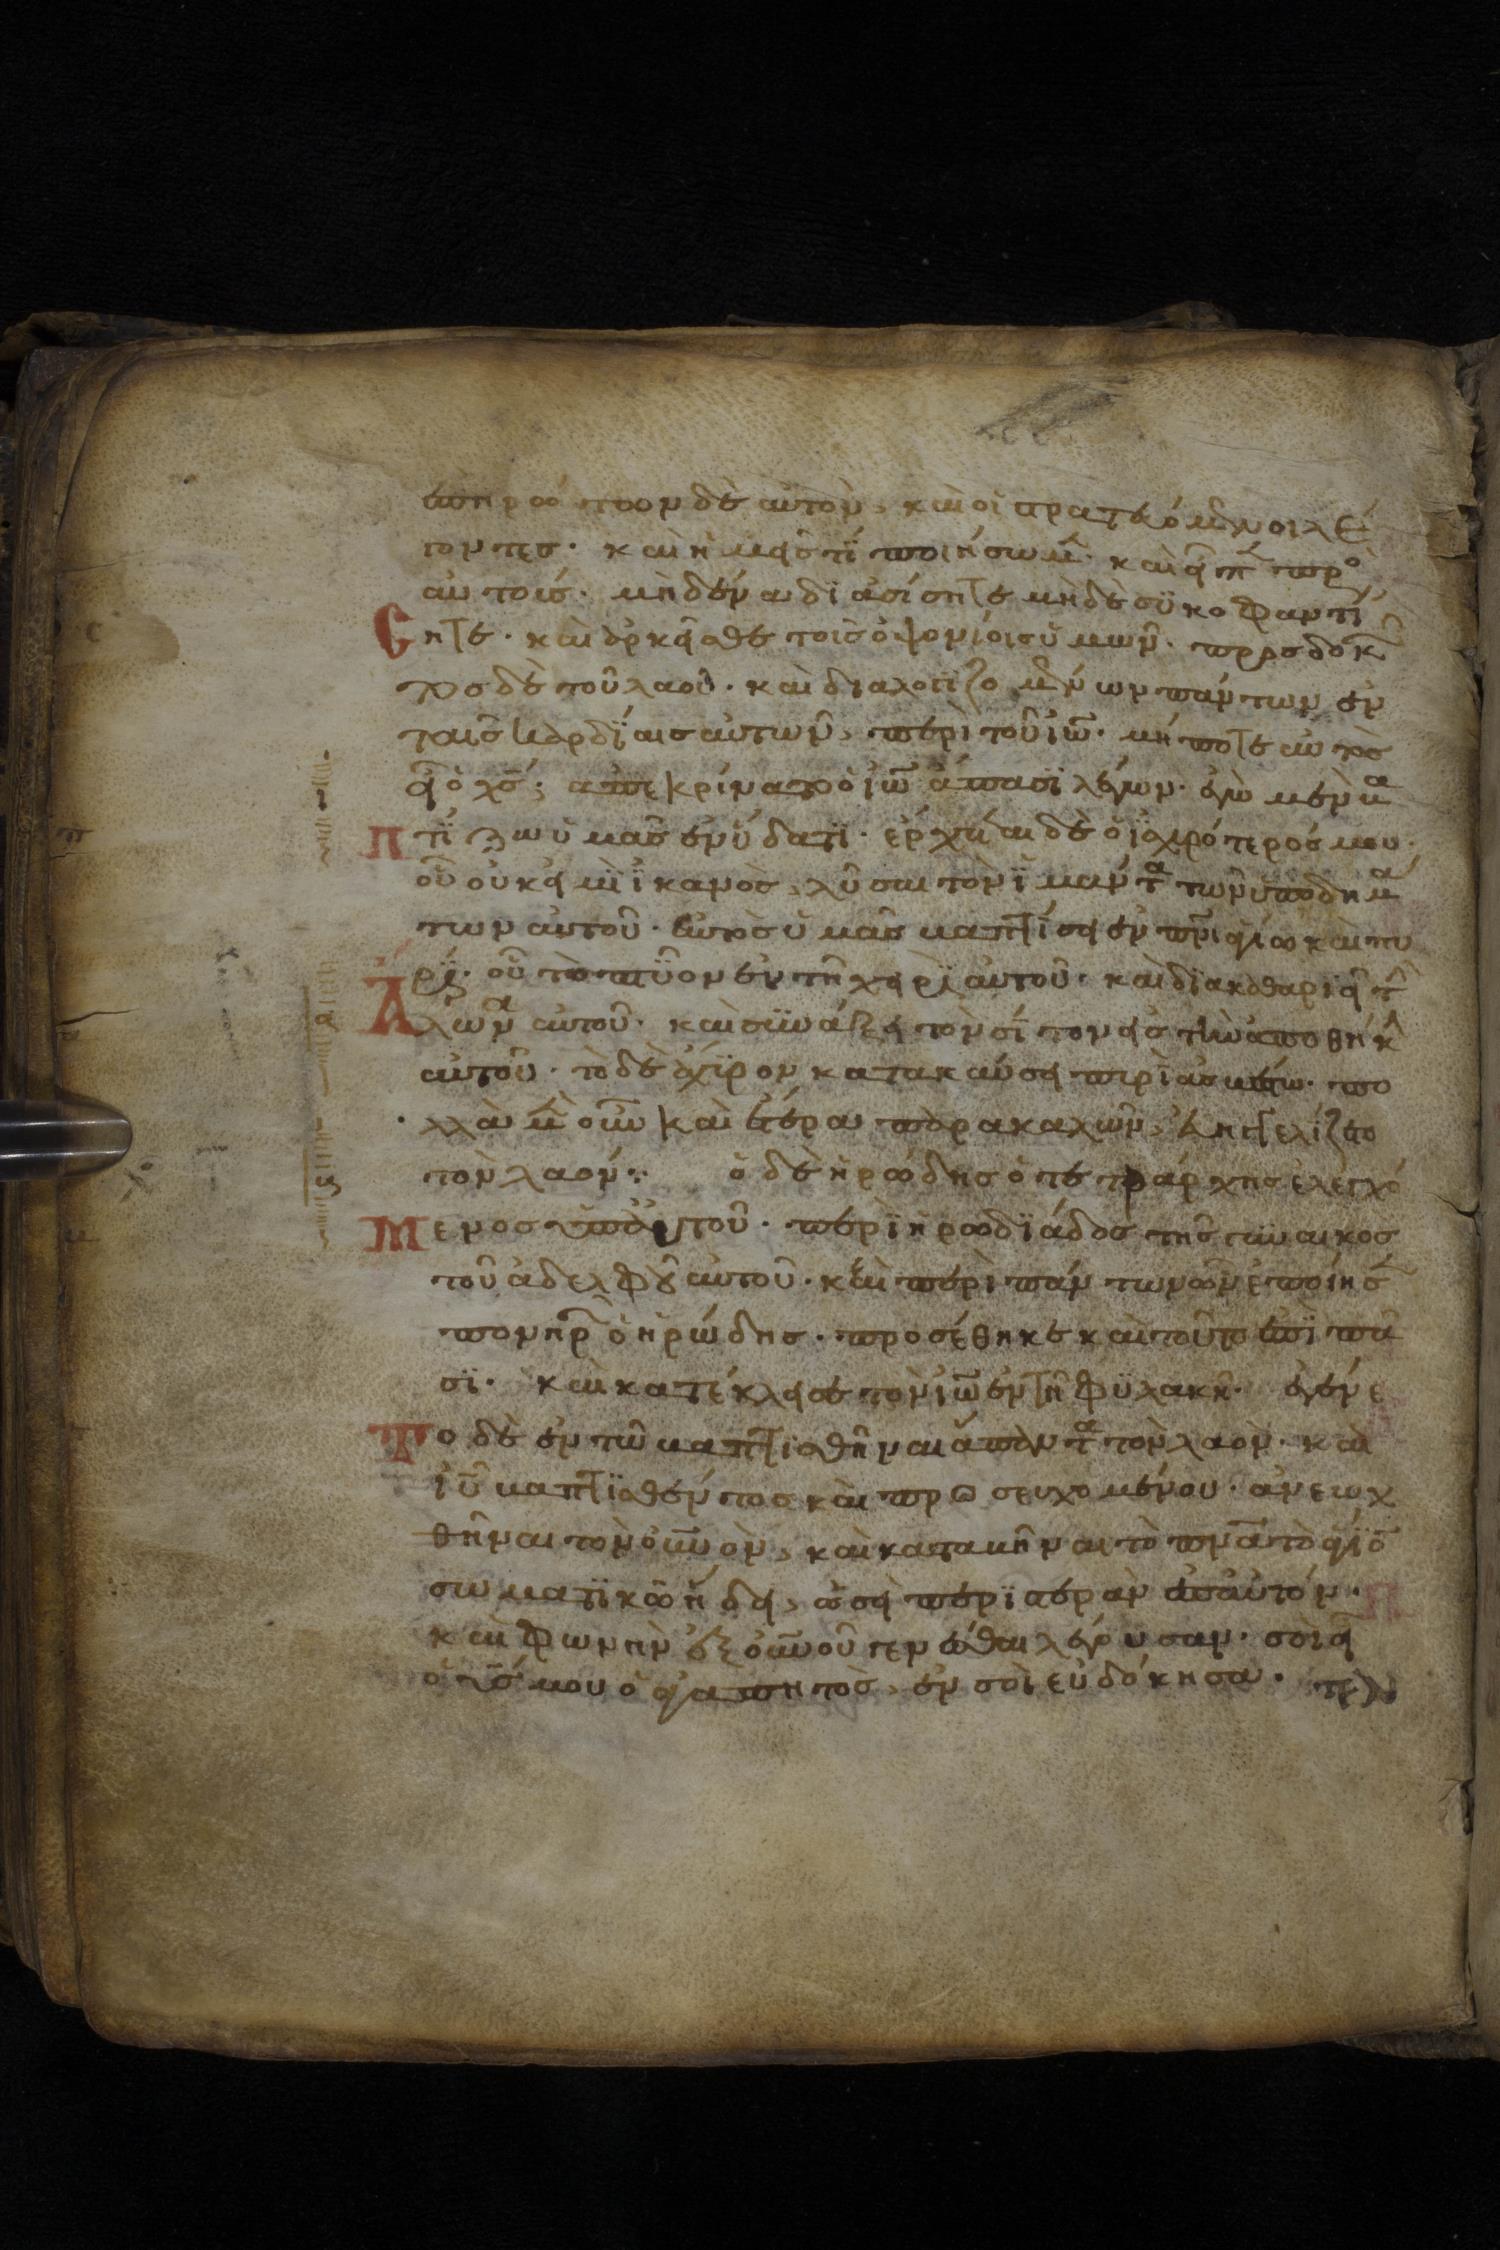 ἐπηρώτουν δὲ αὐτὸν, καὶ οἱ στρατευόμενοι λέ
γοντες· καὶ ἡμεῖς τί ποιήσωμ̅· καὶ εἶπ̅ πρὸ
αὐτούς· μηδένα διασίσητε μηδὲ συκοφαντί
σητε· καὶ ἀρκεῖσθε τοῖς ὀψονίοις ὑμῶν· προσδοκ̅
τος δὲ τοῦ λαοῦ· καὶ διαλογιζομένων πάντων ἐν
ταῖς καρδίαις αὐτῶν, περὶ τοῦ ἰω̅· μήποτε αὐτὸς
εἶ ὁ χς̅; ἀπεκρίνατο ὁ ἰω̅ ἅπασι λέγων· ἐγὼ μὲν βα
πτίζω ὑμᾶς ἐν ὕδατι· ἔρχεται δὲ ὁ ἰσχυρότερός μου·
οὗ οὐκ εἰμὶ ἱκανὸς, λῦσαι τὸν ἱμάντα τῶν ὑποδημά
των αὐτοῦ· αὐτὸς ὑμᾶς βαπτίσει ἐν πνι̅ ἁγίω καὶ πυ
ρί· οὗ τὸ πτύον ἐν τῆ χειρὶ αὐτοῦ· καὶ διακαθαριεῖ τ̅
ἅλωνα αὐτοῦ· καὶ συνάξει τὸν σίτον εἰς τὴν ἀποθήκ̅
αὐτοῦ· τὸ δὲ ἄχυρον κατακαύσει πυρὶ ἀσβέστω· πο
λλὰ μὲν οὖν καὶ ἕτερα παρακαλῶν, εὐηγγελίζετο
τὸν λαόν: ὁ δὲ ἡρώδης ὁ τετράρχης ἐλεγχό
μενος ὑπὸ αὐτοῦ· περὶ ἡρωδιάδος τῆς γυναικος
τοῦ ἀδελφοῦ αὐτοῦ· καὶ περὶ πάντων ὧν ἐποίησ
πονηρ̅ ὁ ἡρώδης· προσέθηκε καὶ τοῦτο ἐπὶ πᾶ
σι· καὶ κατέκλεισε τὸν ἰω̅ ἐν τῆ φυλακῆ· ἐγένε
το δὲ ἐν τῶ βαπτισθῆναι ἅπαντα τὸν λαὸν· καὶ
ἰυ̅ βαπτισθέντος καὶ προσευχομένου· ἀνεωχ
θῆναι τὸν οὐνον̅, καὶ καταβῆναι τὸ πνα̅ τὸ ἅγιο
σωματικῶ εἴδει, ὡσεὶ περιστερὰν ἐπ αὐτόν·
καὶ φωνὴν ἐξ οὐνου̅ γενέσθαι λέγουσαν· σὺ εἶ
ὁ υς̅ μου ὁ ἀγαπητὸς, ἐν σοὶ εὐδόκησα· τελ